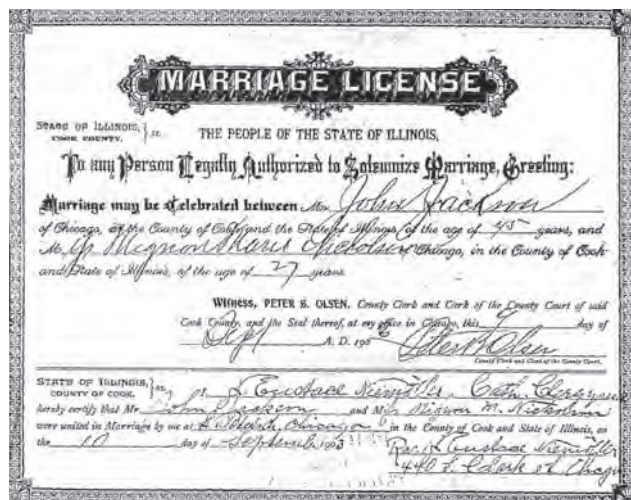 MARRIAGE LICENSE
STATE OF ILLINOIS, } ss.
COOK COUNTY.
THE PEOPLE OF THE STATE OF ILLINOIS,
To any Person Legally Authorized to Solemnize Marriage, Greeting:
Marriage may be Celebrated between Mr. John Jackson
of Chicago, in the County of Cook and the State of Illinois, of the age of 45 years, and
M Mignon Marie Nicholson of Chicago, in the County of Cook
and State of Illinois, of the age of 27 years.
WITNESS, PETER B. OLSEN, County Clerk and Clerk of the County Court of said
Cook County, and the Seal thereof, at my office in Chicago, this day of
Sept A. D. 190 Peter B. Olsen
County Clerk and Clerk of the County Court.
STATE OF ILLINOIS, } ss.
COUNTY OF COOK. I, Eustace Cath. Clergyman
hereby certify that Mr. John Jackson and Miss Mignon M.
were united in Marriage by me at Chicago in the County of Cook and State of Illinois, on
the 10 day of September 1903
Rev. Eustace
440 Clark st Chicago